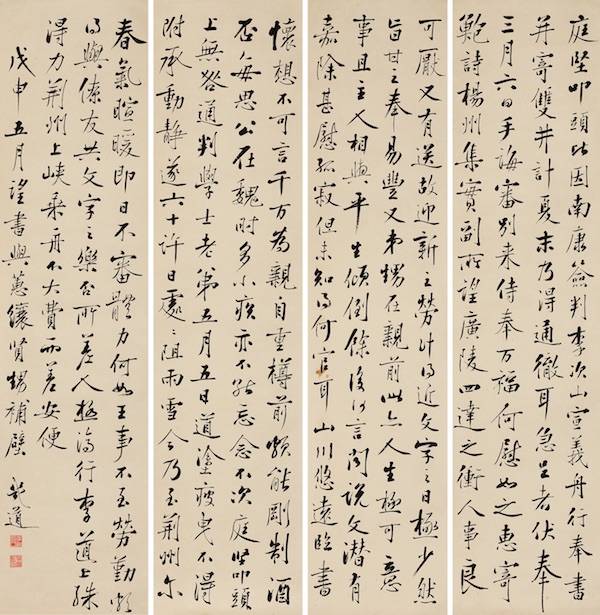 庭堅叩頭比因南康簽判李次山宣義舟行奉書
并寄雙井計夏末乃得通徹耳急足者伏奉
三月六日手誨審別來侍奉万福何慰如之惠寄
鮑詩楊州集實副所望廣陵四達之衝人事良
可厭又有送故迎新之勞計得近文字之日極少然
旨甘之奉易豐又弟甥在親前此亦人生極可意
事且主人相與平生傾倒餘復何言聞說文潛有
嘉除甚慰孤寂但未知得何官耳山川悠遠臨書
懷想不可言千万為親自重樽前頻能剛制酒
否每思公在魏時多小疾亦不能忘念不次庭堅叩頭
上無咎通判學士老弟五月五日道塗疲曳不得
附承動靜遂六十許日處〻阻雨雪今乃至荊州爾
春氣暄暖即日不審體力何如王事不至勞勤頗
得與僚友共文字之樂否所差人極濟行李道上殊
得力荊州上峽乘舟不大費而差安便
戊申五月望書與蕙纕賢甥補壁 道